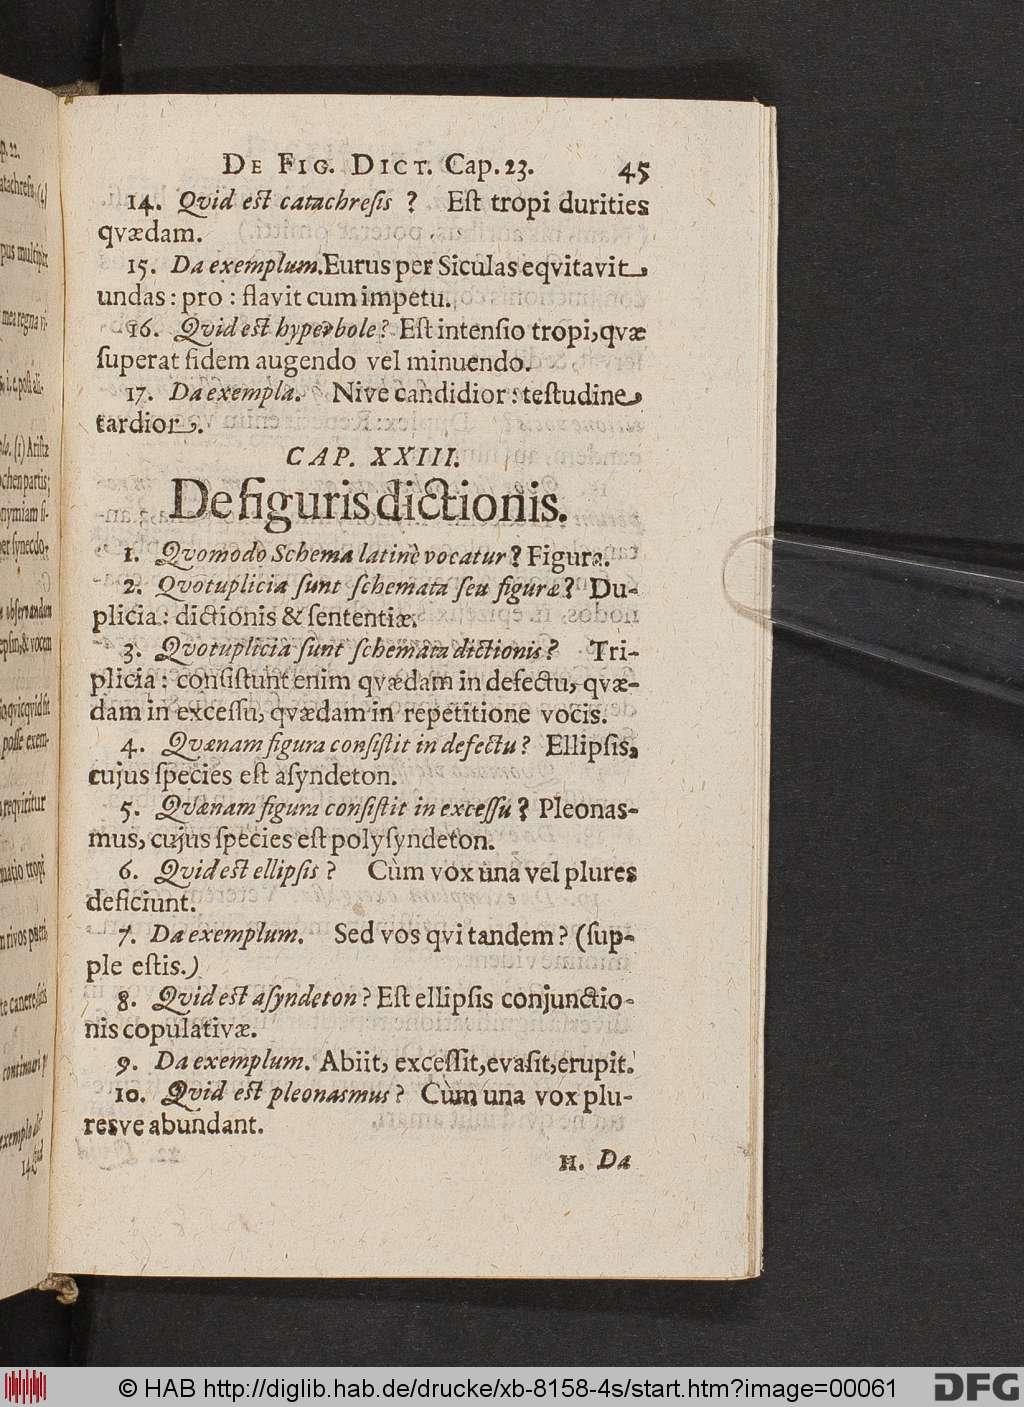 DE FIG. DICT. Cap. 23. 45
14. Qvid est catachresis ? Est tropi durities
qvædam.
15. Da exemplum. Eurus per Siculas eqvitavit
undas : pro : flavit cum impetu.
16. Qvid est hyperbole ? Est intensio tropi, qvæ
superat fidem augendo vel minuendo.
17. Da exempla. Nive candidior : testudine
tardior.
CAP. XXIII.
De figuris dictionis.
1. Qvomodo Schema latinè vocatur ? Figura.
2. Qvotuplicia sunt schemata seu figuræ ? Du-
plicia : dictionis & sententiæ.
3. Qvotuplicia sunt schemata dictionis ? Tri-
plicia : consistunt enim qvædam in defectu, qvæ-
dam in excessu, qvædam in repetitione vocis.
4. Qvænam figura consistit in defectu ? Ellipsis,
cujus species est asyndeton.
5. Qvænam figura consistit in excessu ? Pleonas-
mus, cujus species est polysyndeton.
6. Qvid est ellipsis ? Cùm vox una vel plures
deficiunt.
7. Da exemplum. Sed vos qvi tandem ? (sup-
ple estis.)
8. Qvid est asyndeton ? Est ellipsis conjunctio-
nis copulativæ.
9. Da exemplum. Abiit, excessit, evasit, erupit.
10. Qvid est pleonasmus ? Cùm una vox plu-
resve abundant.
11. Da
© HAB http://diglib.hab.de/drucke/xb-8158-4s/start.htm?image=00061
DFG